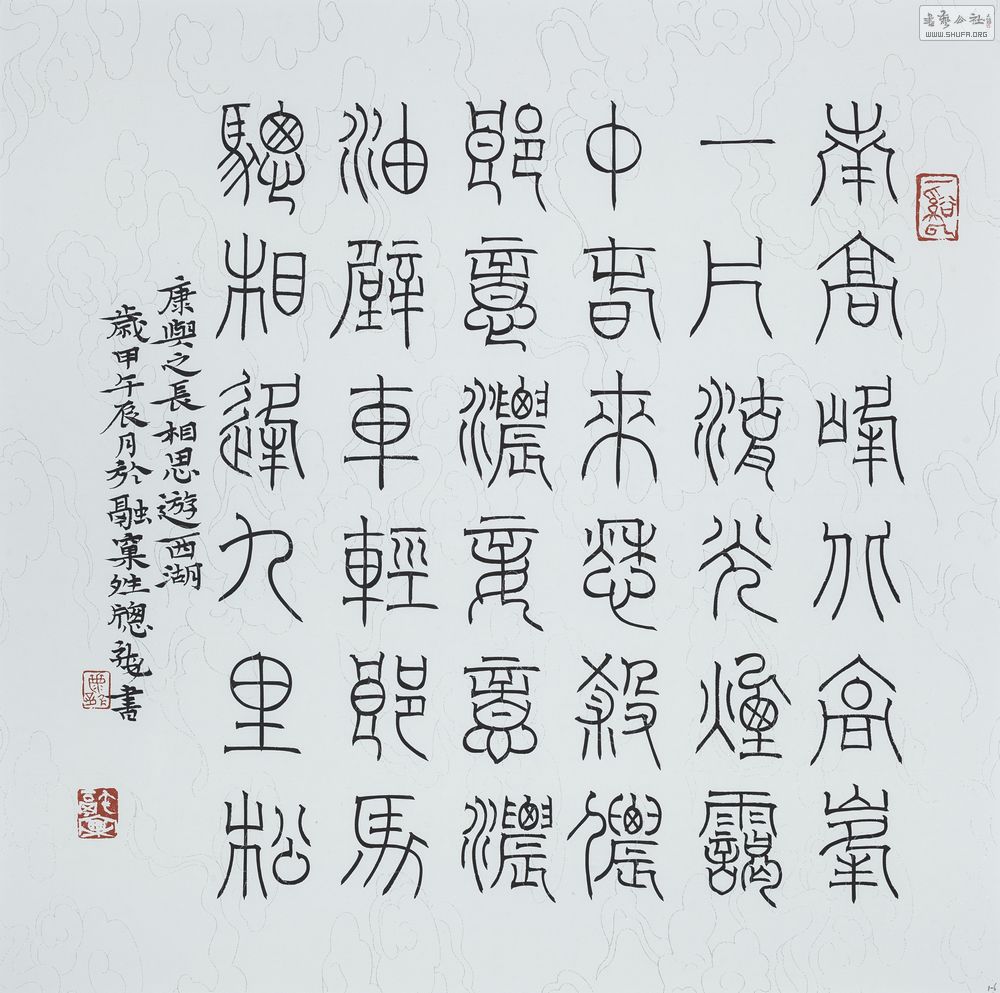 南高峰北高峯
一片湖光煙靄
中春來愁殺儂
郎意濃妾意濃
油壁車輕郎馬
驄相逢九里松
康與之長相思遊西湖
歲甲午辰月於融窠牲牕龍書
書藝公社
WWW.SHUFA.ORG
1-6